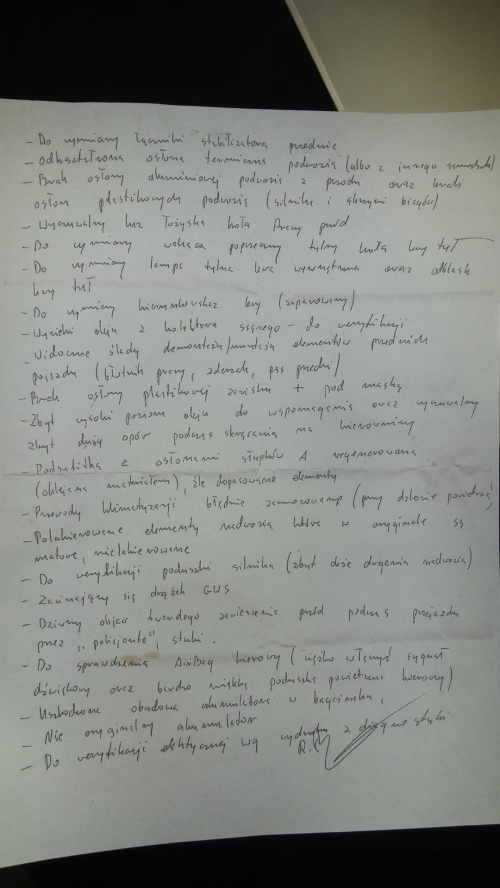 - Do wymiany łączniki stabilizatora przednie
- odkształcona osłona termiczna podwozia (albo z innego samochodu)
- Brak osłony aluminiowej podwozia z przodu oraz brak
osłon plastikowych podwozia (silnika i skrzyni biegów)
- Wyczuwalny luz łożyska koła Prawy przód
- Do wymiany wahacz poprzeczny tylny koła lewy tył
- Do wymiany lampa tylna lewa wewnętrzna oraz odblask
lewy tył
- Do wymiany kierunkowskaz lewy (zaparowany)
- Wycieki oleju z kolektora ssącego - do weryfikacji
- Widoczne ślady demontażu/montażu elementów przednich
pojazdu (błotnik prawy, zderzak, pas przedni)
- Brak osłony plastikowej zacisku + pod maską
- Zbyt wysoki poziom oleju do wspomagania oraz wyczuwalny
zbyt duży opór podczas skręcania na kierownicy
- Podsufitka z osłonami słupków A regenerowana
(oklejana materiałem), źle dopasowane elementy
- Przewody klimatyzacji błędnie zamocowane (przy dolocie powietrza)
- Polakierowane elementy nadwozia które w oryginale są
matowe, nielakierowane
- Do weryfikacji poduszki silnika (zbyt duże drgania nadwozia)
- Zacinający się drążek GWS
- Dziwny objaw twardego zawieszenia przód podczas przejazdu
przez "policjanta", stuki.
- Do sprawdzenia AirBag kierowcy (ciężko włączyć sygnał
dźwiękowy oraz bardzo miękka poduszka powietrzna kierowcy)
- Uszkodzona obudowa akumulatora w bagażniku,
- Nie oryginalny akumulator
- Do weryfikacji elektrycznej wg wydruku z diagnostyki